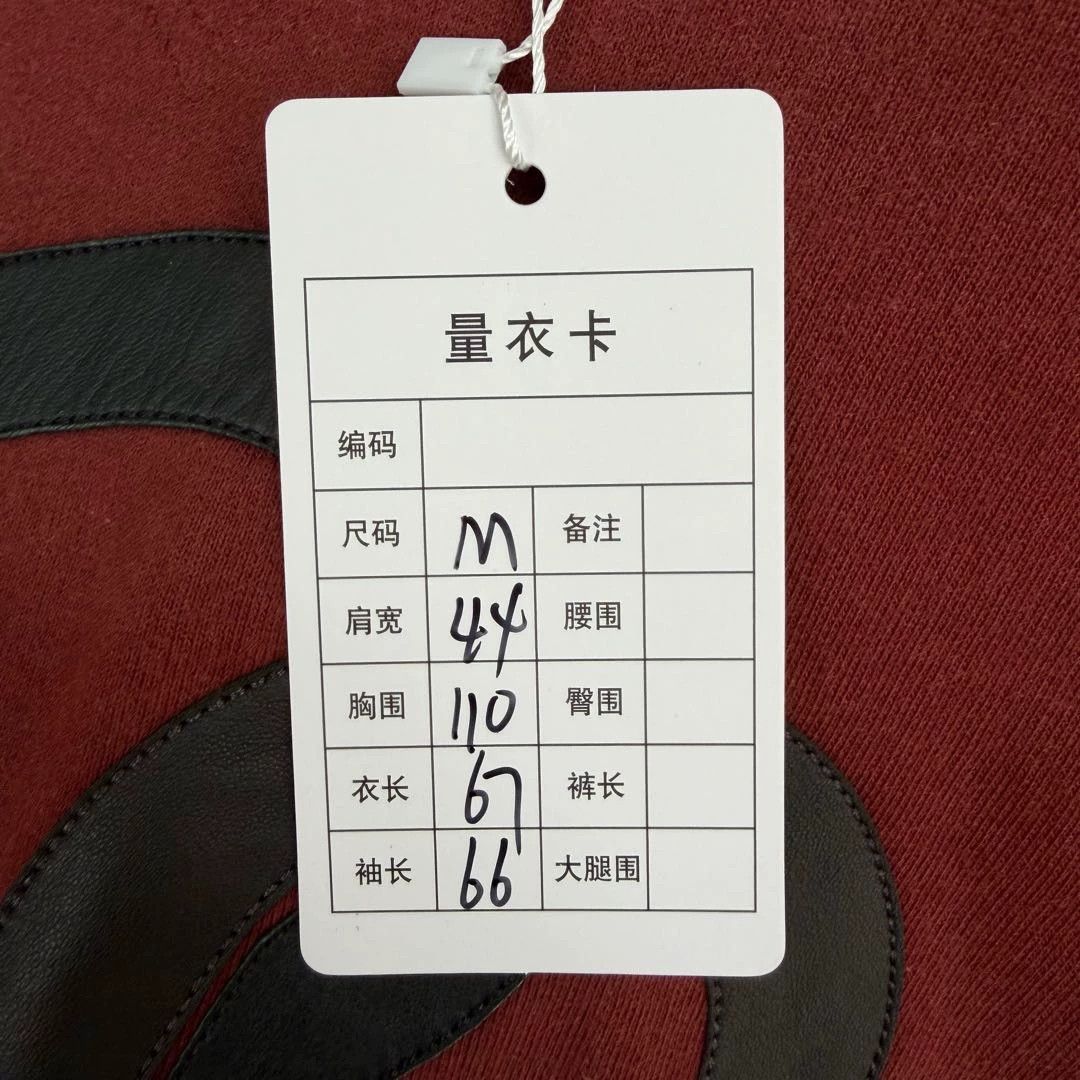 量衣卡
编码
尺码 M 备注
肩宽 44 腰围
胸围 110 臀围
衣长 67 裤长
袖长 66 大腿围